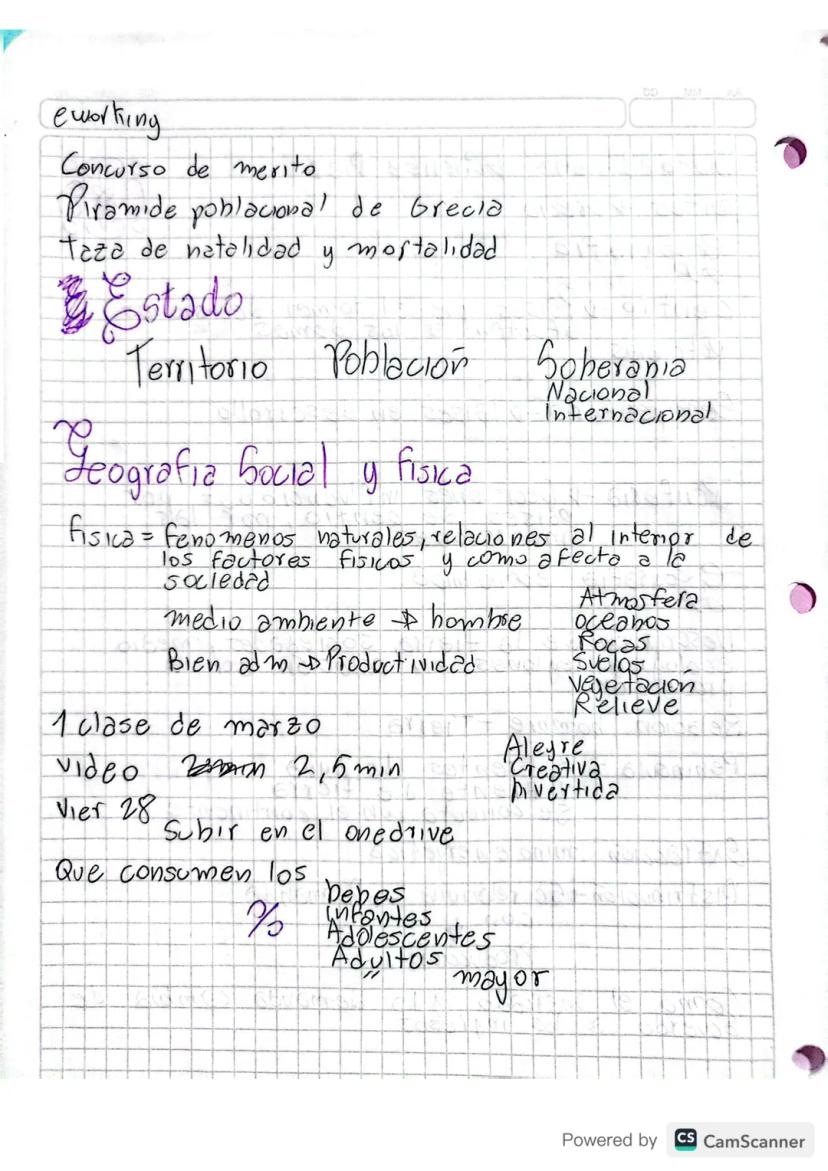 eworking
Concurso de merito
Piramide poblacional de Grecia
taza de natalidad y mortalidad
Estado
Territorio Población Soberania
Nacional
Internacional
Geografia Social y fisica
fisica = fenomenos naturales, relaciones al interior de
los factores fisicos y como afecta a la
sociedad
Atmosfera
medio ambiente → hombre oceanos
Rocas
Bien adm → Productividad Suelos
Vegetación
Relieve
1 clase de marzo
Alegre
video 2,5 min Creativa
Divertida
Vier 28
Subir en el onedrive
Que consumen los
bebes
% infantes
Adolescentes
Adultos
" mayor
Powered by CS CamScanner